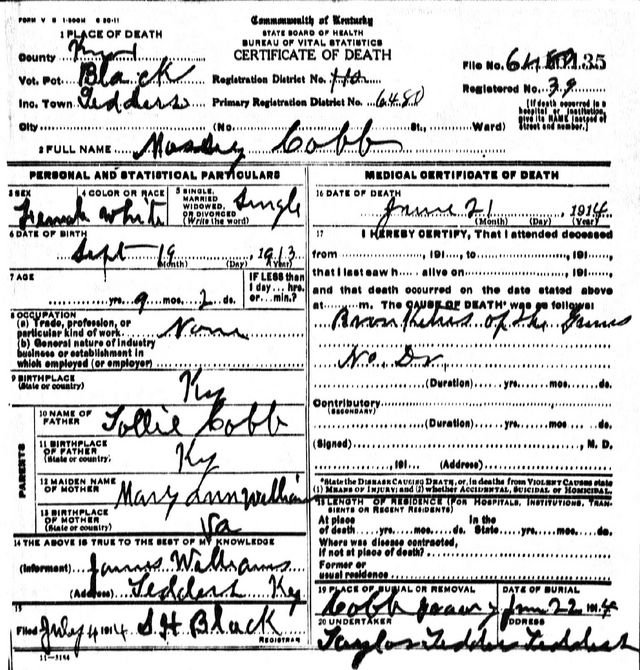 FORM V S 1-300M 6-20-11
Commonwealth of Kentucky
STATE BOARD OF HEALTH
BUREAU OF VITAL STATISTICS
CERTIFICATE OF DEATH
1 PLACE OF DEATH
County
Vot. Pct. Black
Inc. Town Tedders
City (No. St., Ward)
Registration District No.
Primary Registration District No. 6480
File No.
Registered No. 39
[If death occurred in a hospital or institution, give its NAME instead of street and number.]
2 FULL NAME Cobb
PERSONAL AND STATISTICAL PARTICULARS
3 SEX Female
4 COLOR OR RACE White
5 SINGLE, MARRIED WIDOWED, OR DIVORCED (Write the word) Single
6 DATE OF BIRTH
Sept 19, 1913
(Month) (Day) (Year)
7 AGE
yrs. 9 mos. 2 ds.
IF LESS than 1 day... hrs. or... min.?
8 OCCUPATION
(a) Trade, profession, or particular kind of work None
(b) General nature of industry business or establishment in which employed (or employer)
9 BIRTHPLACE
(State or country) Ky
PARENTS
10 NAME OF FATHER Tollie Cobb
11 BIRTHPLACE OF FATHER (State or country) Ky
12 MAIDEN NAME OF MOTHER Mary Ann William
13 BIRTHPLACE OF MOTHER (State or country) Va
14 THE ABOVE IS TRUE TO THE BEST OF MY KNOWLEDGE
(Informant) James Williams
(Address) Tedders Ky
15
Filed July 4 1914 S H Black
REGISTRAR
11-3184
MEDICAL CERTIFICATE OF DEATH
16 DATE OF DEATH
June 21, 1914
(Month) (Day) (Year)
17 I HEREBY CERTIFY, That I attended deceased
from , 191..., to , 191...,
that I last saw h alive on , 191...,
and that death occurred on the date stated above
at m. The CAUSE OF DEATH* was as follows:
of the
No. Dr.
(Duration) yrs. mos. ds.
Contributory
(SECONDARY)
(Duration) yrs. mos. ds.
(Signed) , M. D.
, 191... (Address)
*State the DISEASE CAUSING DEATH, or, in deaths from VIOLENT CAUSES state
(1) MEANS OF INJURY; and (2) whether ACCIDENTAL, SUICIDAL or HOMICIDAL.
18 LENGTH OF RESIDENCE (FOR HOSPITALS, INSTITUTIONS, TRANSIENTS OR RECENT RESIDENTS)
At place of death yrs. mos. ds. In the State yrs. mos. ds.
Where was disease contracted, if not at place of death?
Former or usual residence
19 PLACE OF BURIAL OR REMOVAL
Cobb
DATE OF BURIAL
June 22 1914
20 UNDERTAKER
Taylor Tedders
ADDRESS